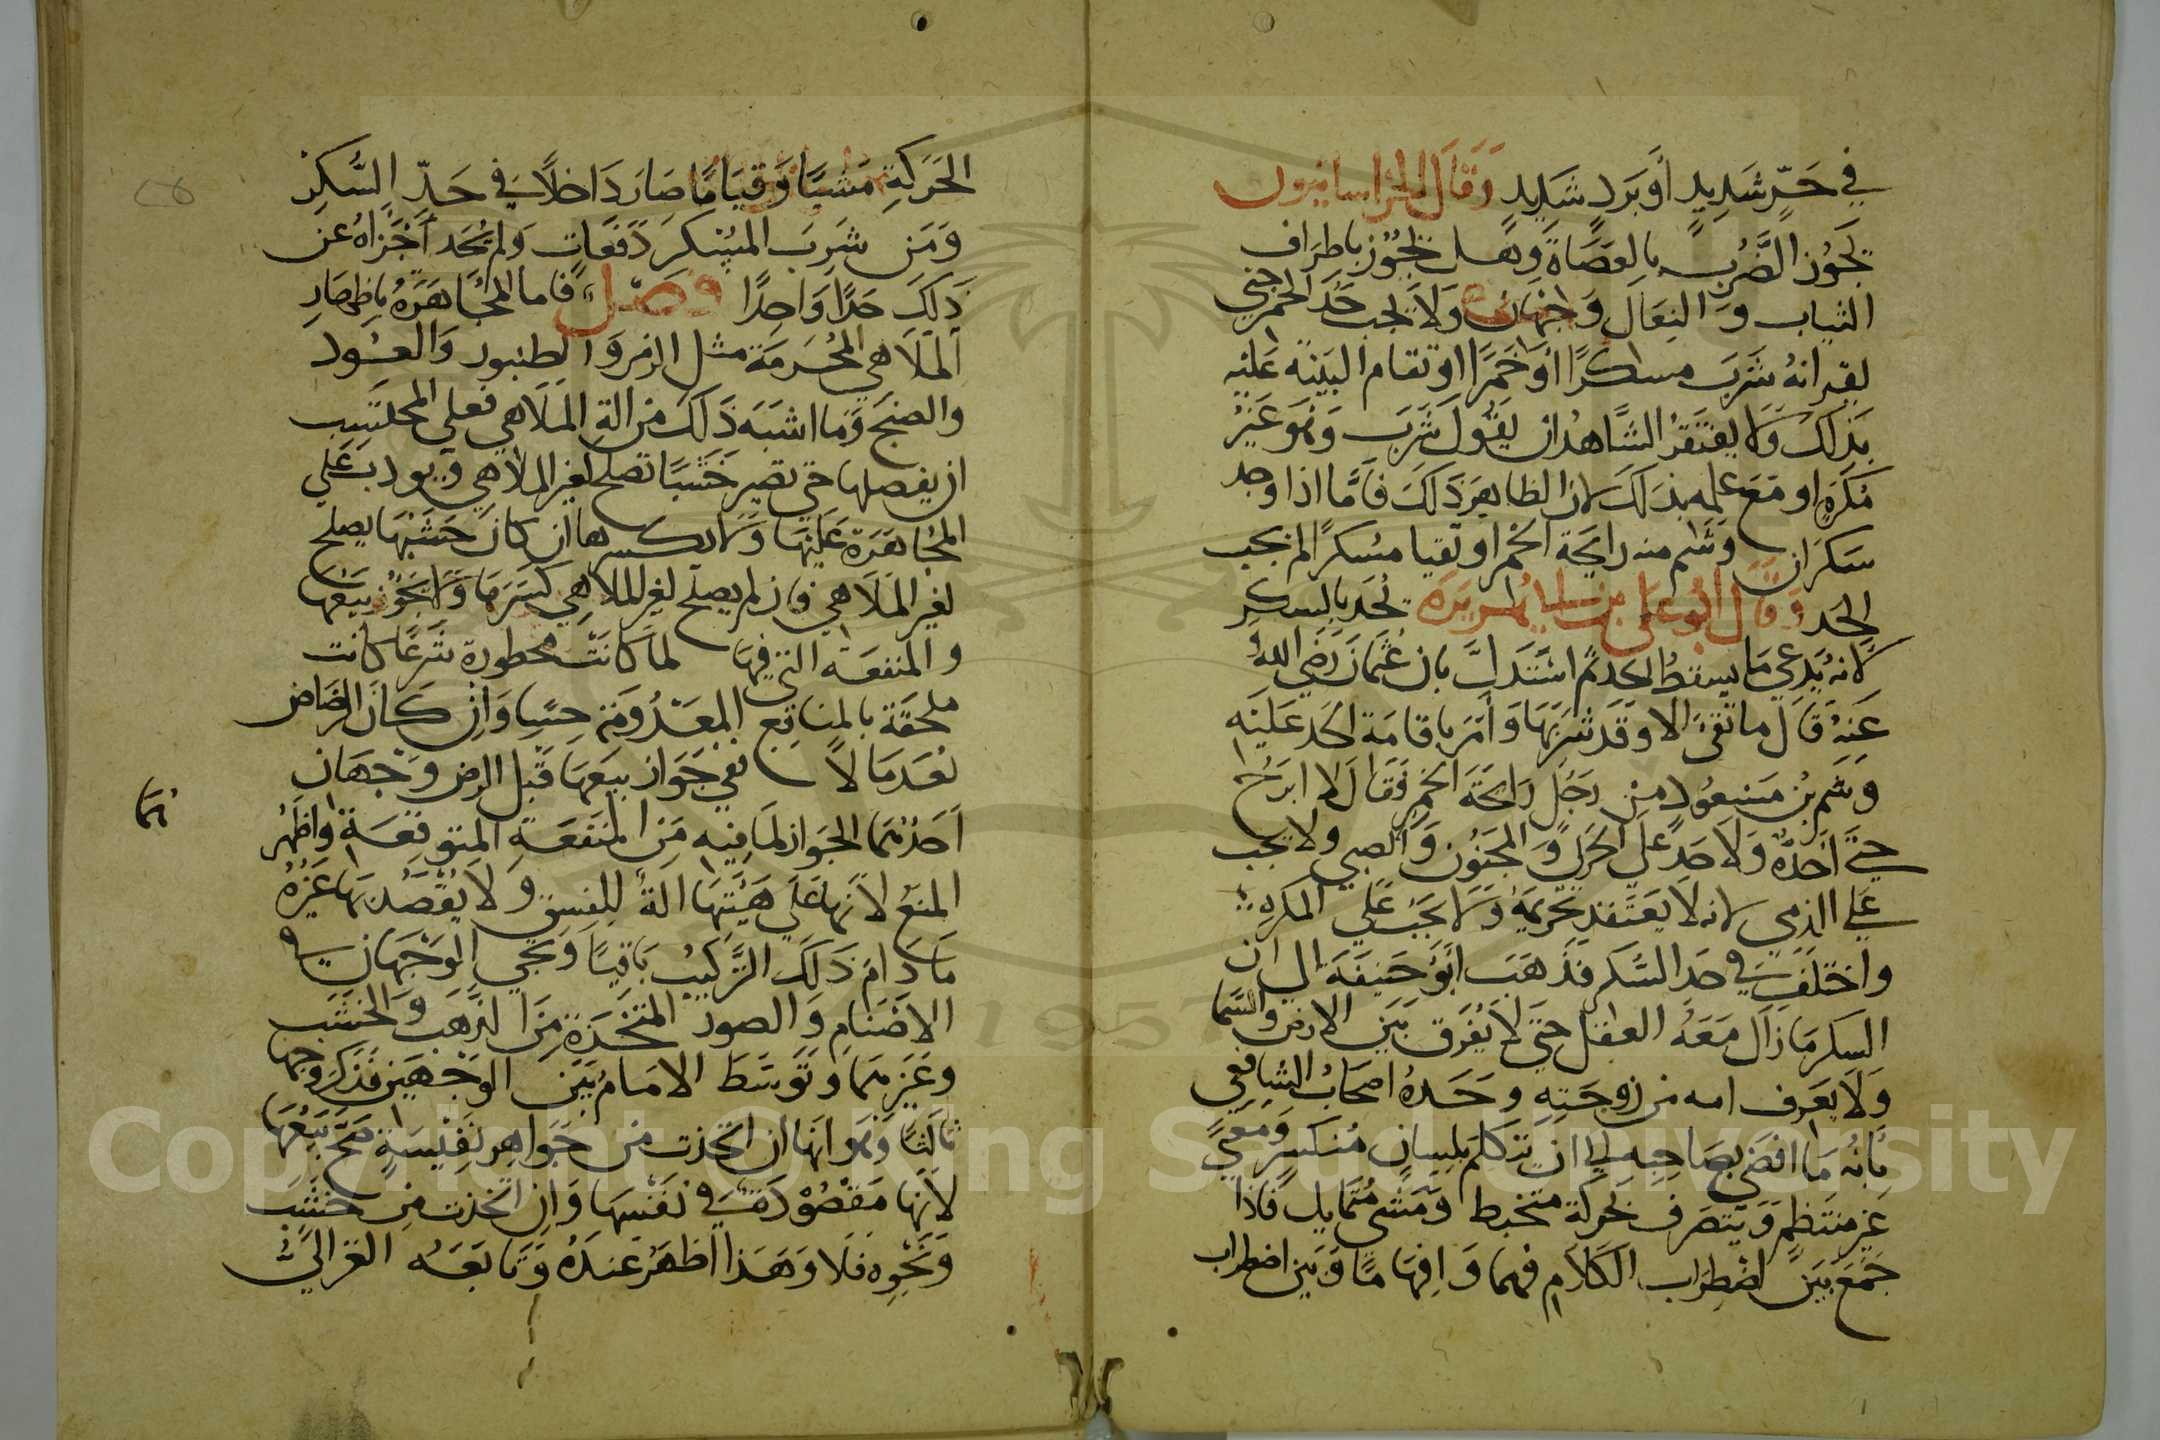 في حَرّ شَدِيدٍ أو بَردٍ شَدِيدٍ وَقَالَ الخراسانيون
يجُوز الضَّربُ بالعصَاة وهل يجُوز باطراف
الثياب وَ النِعَال وَجهان ولا يجب حَدّ الخمر حتي
يقر انهُ شَرِبَ مسكرًا أو خَمرًا او تقام البَينَة عَليْه
بذلك ولا يفتقرُ الشاهدُ ان يقُول شَربَ وَهوَ غَيرُ
مُكرَهٍ او مَعَ علمه بذلك لان الظاهرَ ذَلكَ فأمَّا اذا وجد
سكرَان وشم منه رايحَة الخمر او تقيا مسكرًا لم يجب
الحد وَقَالَ ابُو علي بن ابي هريرَة يُحد بالسكر
لانهُ يَدعي مَا يسقطُ الحد ثم استدلَّ بان عُثمان رَضيَ اللهُ
عَنهُ قَالَ ما تقى الا وقَد شربَهَا وَأمَرَ باقامَة الحَد عَليْه
وشم بنُ مَسعُودٍ من رجُل رَايحَة الخمرِ فقَال لا ابرَحُ
حتى أحُدَّهُ ولا حد على الحرَبي وَ المجنُون وَالصبي ولا يجب
علي الذمي لانه لا يَعتَقد تحريمهُ ولا يجبُ علي المكرهِ
واختلف في حد السكر فذهَبَ أبُو حَنيفة إلى ان
السكر مَا زَال مَعَهُ العقل حتى لا يُفرَق بَين الارض والسَّما
ولا يَعرف امه من زوجَتِهِ وحَدهُ اصحَابُ الشافعي
بأنهُ مَا افضى بصَاحبه الي ان يتكلم بلسان مُنكسِر وَمَعني
غير منتظمٍ وَيتصَرف بحَركة متخبط وَمَشي مُتمَايل فاذا
جَمَعَ بَينَ اضْطِرَاب الكَلامِ فهما وَافهَامًا وَبَين اضطراب
الحَرَكَةِ مَشيًا وَقيَامًا صَارَ دَاخلاً في حَدّ السُّكرْ
وَمَن شرِبَ المُسْكر دَفعَاتٍ ولم يُحَد أجْزاهُ عَن
ذَلِكَ حَدًا وَاحِدًا فصل فاما المجَاهَرَةُ باظهارِ
المَلاهي المُحرَمَة مثل الزمر وَالطنبور وَالعُود
والصنج وَما اشبَهَ ذَلكَ من الةِ الملاهي فعلى المحتسِب
ان يفصلها حتي تصير خَشبًا تصلح لغير الملاهي وَيودب عَلي
المجَاهَرَة عَليهَا ولا يكسرها ان كانَ خشَبُهَا يصلح
لغير المَلاهي فان لم يصلح لغير الملاهي كسَرَهَا وَلا يجُوز بَيعُهَا
و المنفعَة التي فيهَا لما كَانَت محظورة شَرعًا كانت
ملحقَة بالمنَافِع المعْدُومَة حِسًا وَان كَانَ الرضاض
يُعَد مَالاً ففي جَوَاز بيَعهَا قَبل الرض وَجهان
أحدُهُمَا الجَوَاز لمَا فيهِ مَن المنفعَةِ المتوقعَةِ وَاظهَرُ
المنعُ لانهَا عَلي هَيئتِهَا الةُ للفسقِ وَ لا يُقصَدُ بهَا غَيرُهُ
مَا دَامَ ذَلكَ التَّركيبُ بَاقيًا وَيجي الوَجهَان في
الاصنَامِ وَالصور المتخذة مِن الذهَب وَالخشَب
وغَيرهِمَا وتَوسَّطَ الامَام بَين الوَجهَين فذكرَ وجهًا
ثالثًا وهو انهَا ان اتخذت من جَوَاهِر نَفيسَةٍ صَحَّ بَيعُهَا
لانها مَقصُودَة في نَفسِهَا وَان اتخذت مِن خشَب
وَنحوِهِ فَلا وَهَذا اظهَر عندَهُ وَتَابَعَه الغزاليُّ